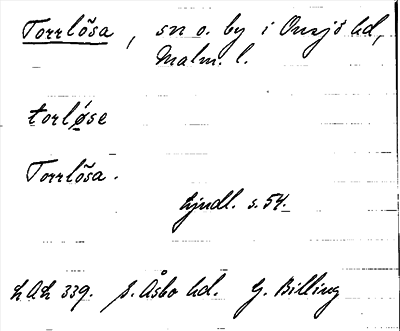 Torrlõsa, sn o. by i Onsjö hd,
Malm. l.
torløse
Torrlõsa.
Ljudl. s. 54.
LAL 339. S. Åsbo hd. G. Billing